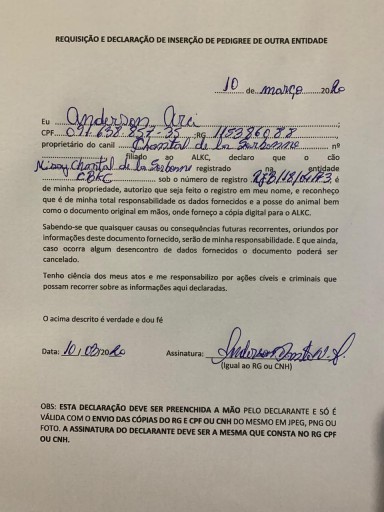 REQUISIÇÃO E DECLARAÇÃO DE INSERÇÃO DE PEDIGREE DE OUTRA ENTIDADE
10 de março 2020
Eu Anderson
CPF 097638857-35 RG 115386088
proprietário do canil Chantal de la Sorbonne nº
filiado ao ALKC, declaro que o cão
Missy Chantal de la Sorbonne registrado na entidade
CBKC sob o número de registro RJB/18/ é
de minha propriedade, autorizo que seja feito o registro em meu nome, e reconheço
que é de minha total responsabilidade os dados fornecidos e a posse do animal bem
como o documento original em mãos, onde forneço a cópia digital para o ALKC.
Sabendo-se que quaisquer causas ou consequências futuras recorrentes, oriundos por
informações deste documento fornecido, serão de minha responsabilidade. E que ainda,
caso ocorra algum desencontro de dados fornecidos o documento poderá ser
cancelado.
Tenho ciência dos meus atos e me responsabilizo por ações cíveis e criminais que
possam recorrer sobre as informações aqui declaradas.
O acima descrito é verdade e dou fé
Data: 10/03/2020 Assinatura: Anderson
(Igual ao RG ou CNH)
OBS: ESTA DECLARAÇÃO DEVE SER PREENCHIDA A MÃO PELO DECLARANTE E SÓ É
VÁLIDA COM O ENVIO DAS CÓPIAS DO RG E CPF OU CNH DO MESMO EM JPEG, PNG OU
FOTO. A ASSINATURA DO DECLARANTE DEVE SER A MESMA QUE CONSTA NO RG CPF
OU CNH.